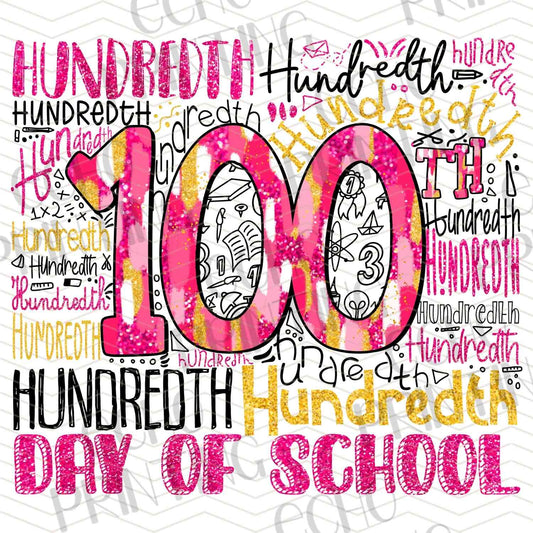 HUNDREDTH Hundredth hundredth
HUNDREDTH Hundredth Hundredth
Hundredth
100TH
1x2=
Hundredth
Hundredth
Hundredth
HUNDREDTH
Hundredth
HUNDREDTH
Hundredth
Hundredth
hundredth
Hundredth
1
3
HUNDREDTH Hundredth
DAY OF SCHOOL
ECHO PRINTING